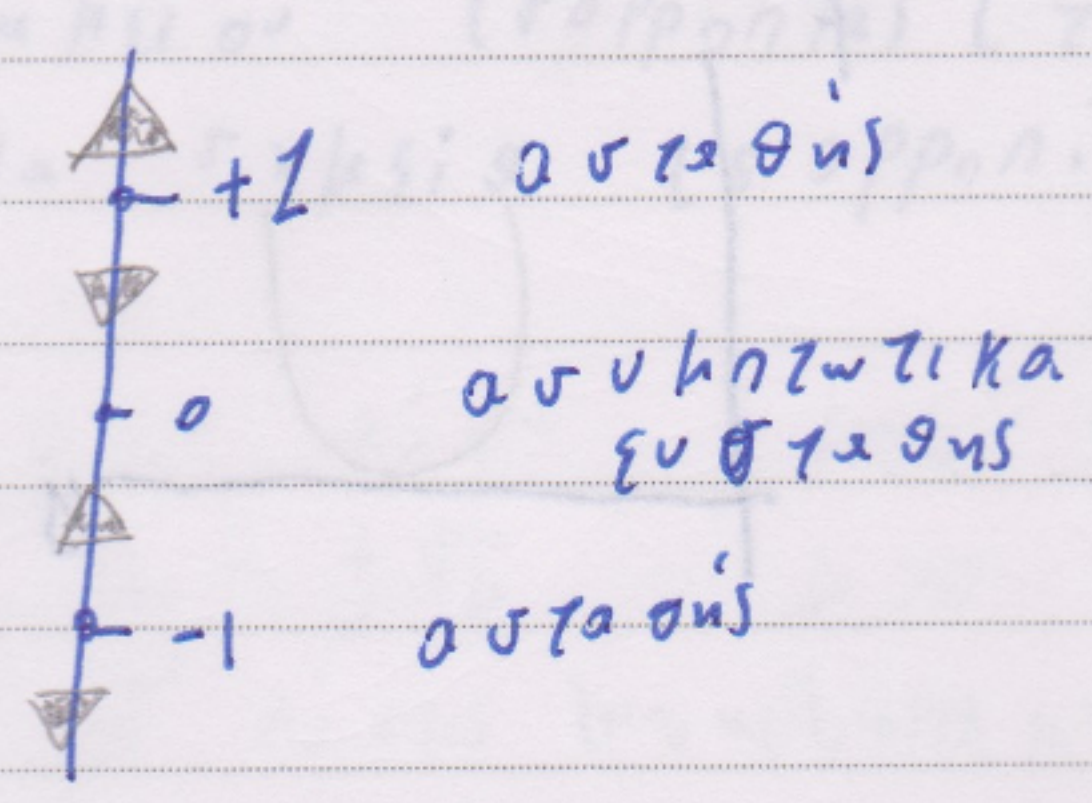 +1 ασταθής
0 ασυμπτωτικα
ευσταθης
-1 ασταθής